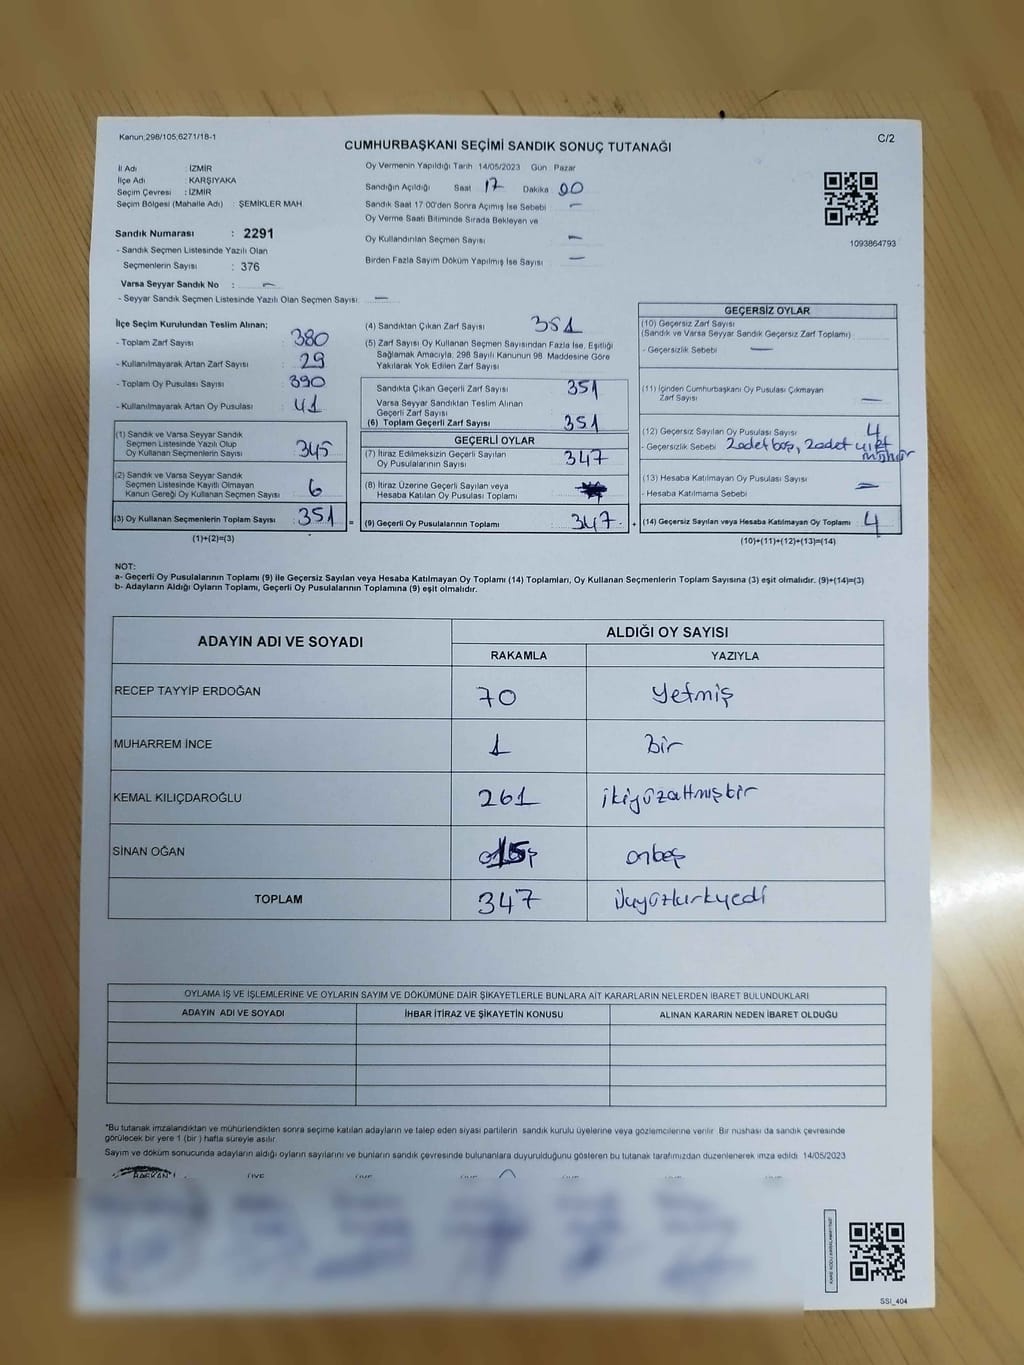 Kanun;298/105,6271/18-1
C/2
CUMHURBAŞKANI SEÇİMİ SANDIK SONUÇ TUTANAĞI
İl Adı : İZMİR
İlçe Adı : KARŞIYAKA
Seçim Çevresi : İZMİR
Seçim Bölgesi (Mahalle Adı) : ŞEMİKLER MAH
Sandık Numarası : 2291
- Sandık Seçmen Listesinde Yazılı Olan
Seçmenlerin Sayısı : 376
Varsa Seyyar Sandık No : —
- Seyyar Sandık Seçmen Listesinde Yazılı Olan Seçmen Sayısı: —
Oy Vermenin Yapıldığı Tarih 14/05/2023 Gün Pazar
Sandığın Açıldığı Saat 17 Dakika 00
Sandık Saat 17:00'den Sonra Açımış İse Sebebi —
Oy Verme Saati Bitiminde Sırada Bekleyen ve
Oy Kullandırılan Seçmen Sayısı —
Birden Fazla Sayım Döküm Yapılmış İse Sayısı —
1093864793
İlçe Seçim Kurulundan Teslim Alınan;
- Toplam Zarf Sayısı : 380
- Kullanılmayarak Artan Zarf Sayısı : 29
- Toplam Oy Pusulası Sayısı : 390
- Kullanılmayarak Artan Oy Pusulası : 41
(1) Sandık ve Varsa Seyyar Sandık
Seçmen Listesinde Yazılı Olup
Oy Kullanan Seçmenlerin Sayısı : 345
(2) Sandık ve Varsa Seyyar Sandık
Seçmen Listesinde Kayıtlı Olmayan
Kanun Gereği Oy Kullanan Seçmen Sayısı : 6
(3) Oy Kullanan Seçmenlerin Toplam Sayısı : 351 =
(1)+(2)=(3)
(4) Sandıktan Çıkan Zarf Sayısı 351
(5) Zarf Sayısı Oy Kullanan Seçmen Sayısından Fazla İse, Eşitliği
Sağlamak Amacıyla, 298 Sayılı Kanunun 98. Maddesine Göre
Yakılarak Yok Edilen Zarf Sayısı
Sandıkta Çıkan Geçerli Zarf Sayısı 351
Varsa Seyyar Sandıktan Teslim Alınan
Geçerli Zarf Sayısı
(6) Toplam Geçerli Zarf Sayısı 351
GEÇERLİ OYLAR
(7) İtiraz Edilmeksizin Geçerli Sayılan
Oy Pusulalarının Sayısı 347
(8) İtiraz Üzerine Geçerli Sayılan veya
Hesaba Katılan Oy Pusulası Toplamı
(9) Geçerli Oy Pusulalarının Toplamı 347 +
GEÇERSİZ OYLAR
(10) Geçersiz Zarf Sayısı
(Sandık ve Varsa Seyyar Sandık Geçersiz Zarf Toplamı)
- Geçersizlik Sebebi —
(11) İçinden Cumhurbaşkanı Oy Pusulası Çıkmayan
Zarf Sayısı —
(12) Geçersiz Sayılan Oy Pusulası Sayısı 4
- Geçersizlik Sebebi 2 adet boş, 2 adet çift
mühür
(13) Hesaba Katılmayan Oy Pusulası Sayısı —
- Hesaba Katılmama Sebebi
(14) Geçersiz Sayılan veya Hesaba Katılmayan Oy Toplamı 4
(10)+(11)+(12)+(13)=(14)
NOT:
a- Geçerli Oy Pusulalarının Toplamı (9) ile Geçersiz Sayılan veya Hesaba Katılmayan Oy Toplamı (14) Toplamları, Oy Kullanan Seçmenlerin Toplam Sayısına (3) eşit olmalıdır. (9)+(14)=(3)
b- Adayların Aldığı Oyların Toplamı, Geçerli Oy Pusulalarının Toplamına (9) eşit olmalıdır.
ADAYIN ADI VE SOYADI
ALDIĞI OY SAYISI
RAKAMLA YAZIYLA
RECEP TAYYİP ERDOĞAN 70 Yetmiş
MUHARREM İNCE 1 Bir
KEMAL KILIÇDAROĞLU 261 ikiyüzaltmışbir
SİNAN OĞAN 15 onbeş
TOPLAM 347 üçyüzkırkyedi
OYLAMA İŞ VE İŞLEMLERİNE VE OYLARIN SAYIM VE DÖKÜMÜNE DAİR ŞİKAYETLERLE BUNLARA AİT KARARLARIN NELERDEN İBARET BULUNDUKLARI
ADAYIN ADI VE SOYADI İHBAR İTİRAZ VE ŞİKAYETİN KONUSU ALINAN KARARIN NEDEN İBARET OLDUĞU
*Bu tutanak imzalandıktan ve mühürlendikten sonra seçime katılan adayların ve talep eden siyasi partilerin sandık kurulu üyelerine veya gözlemcilerine verilir. Bir nüshası da sandık çevresinde
görülecek bir yere 1 (bir) hafta süreyle asılır.
Sayım ve döküm sonucunda adayların aldığı oyların sayılarını ve bunların sandık çevresinde bulunanlara duyurulduğunu gösteren bu tutanak tarafımızdan düzenlenerek imza edildi. 14/05/2023
BAŞKAN ÜYE ÜYE ÜYE ÜYE ÜYE ÜYE
SSI_404